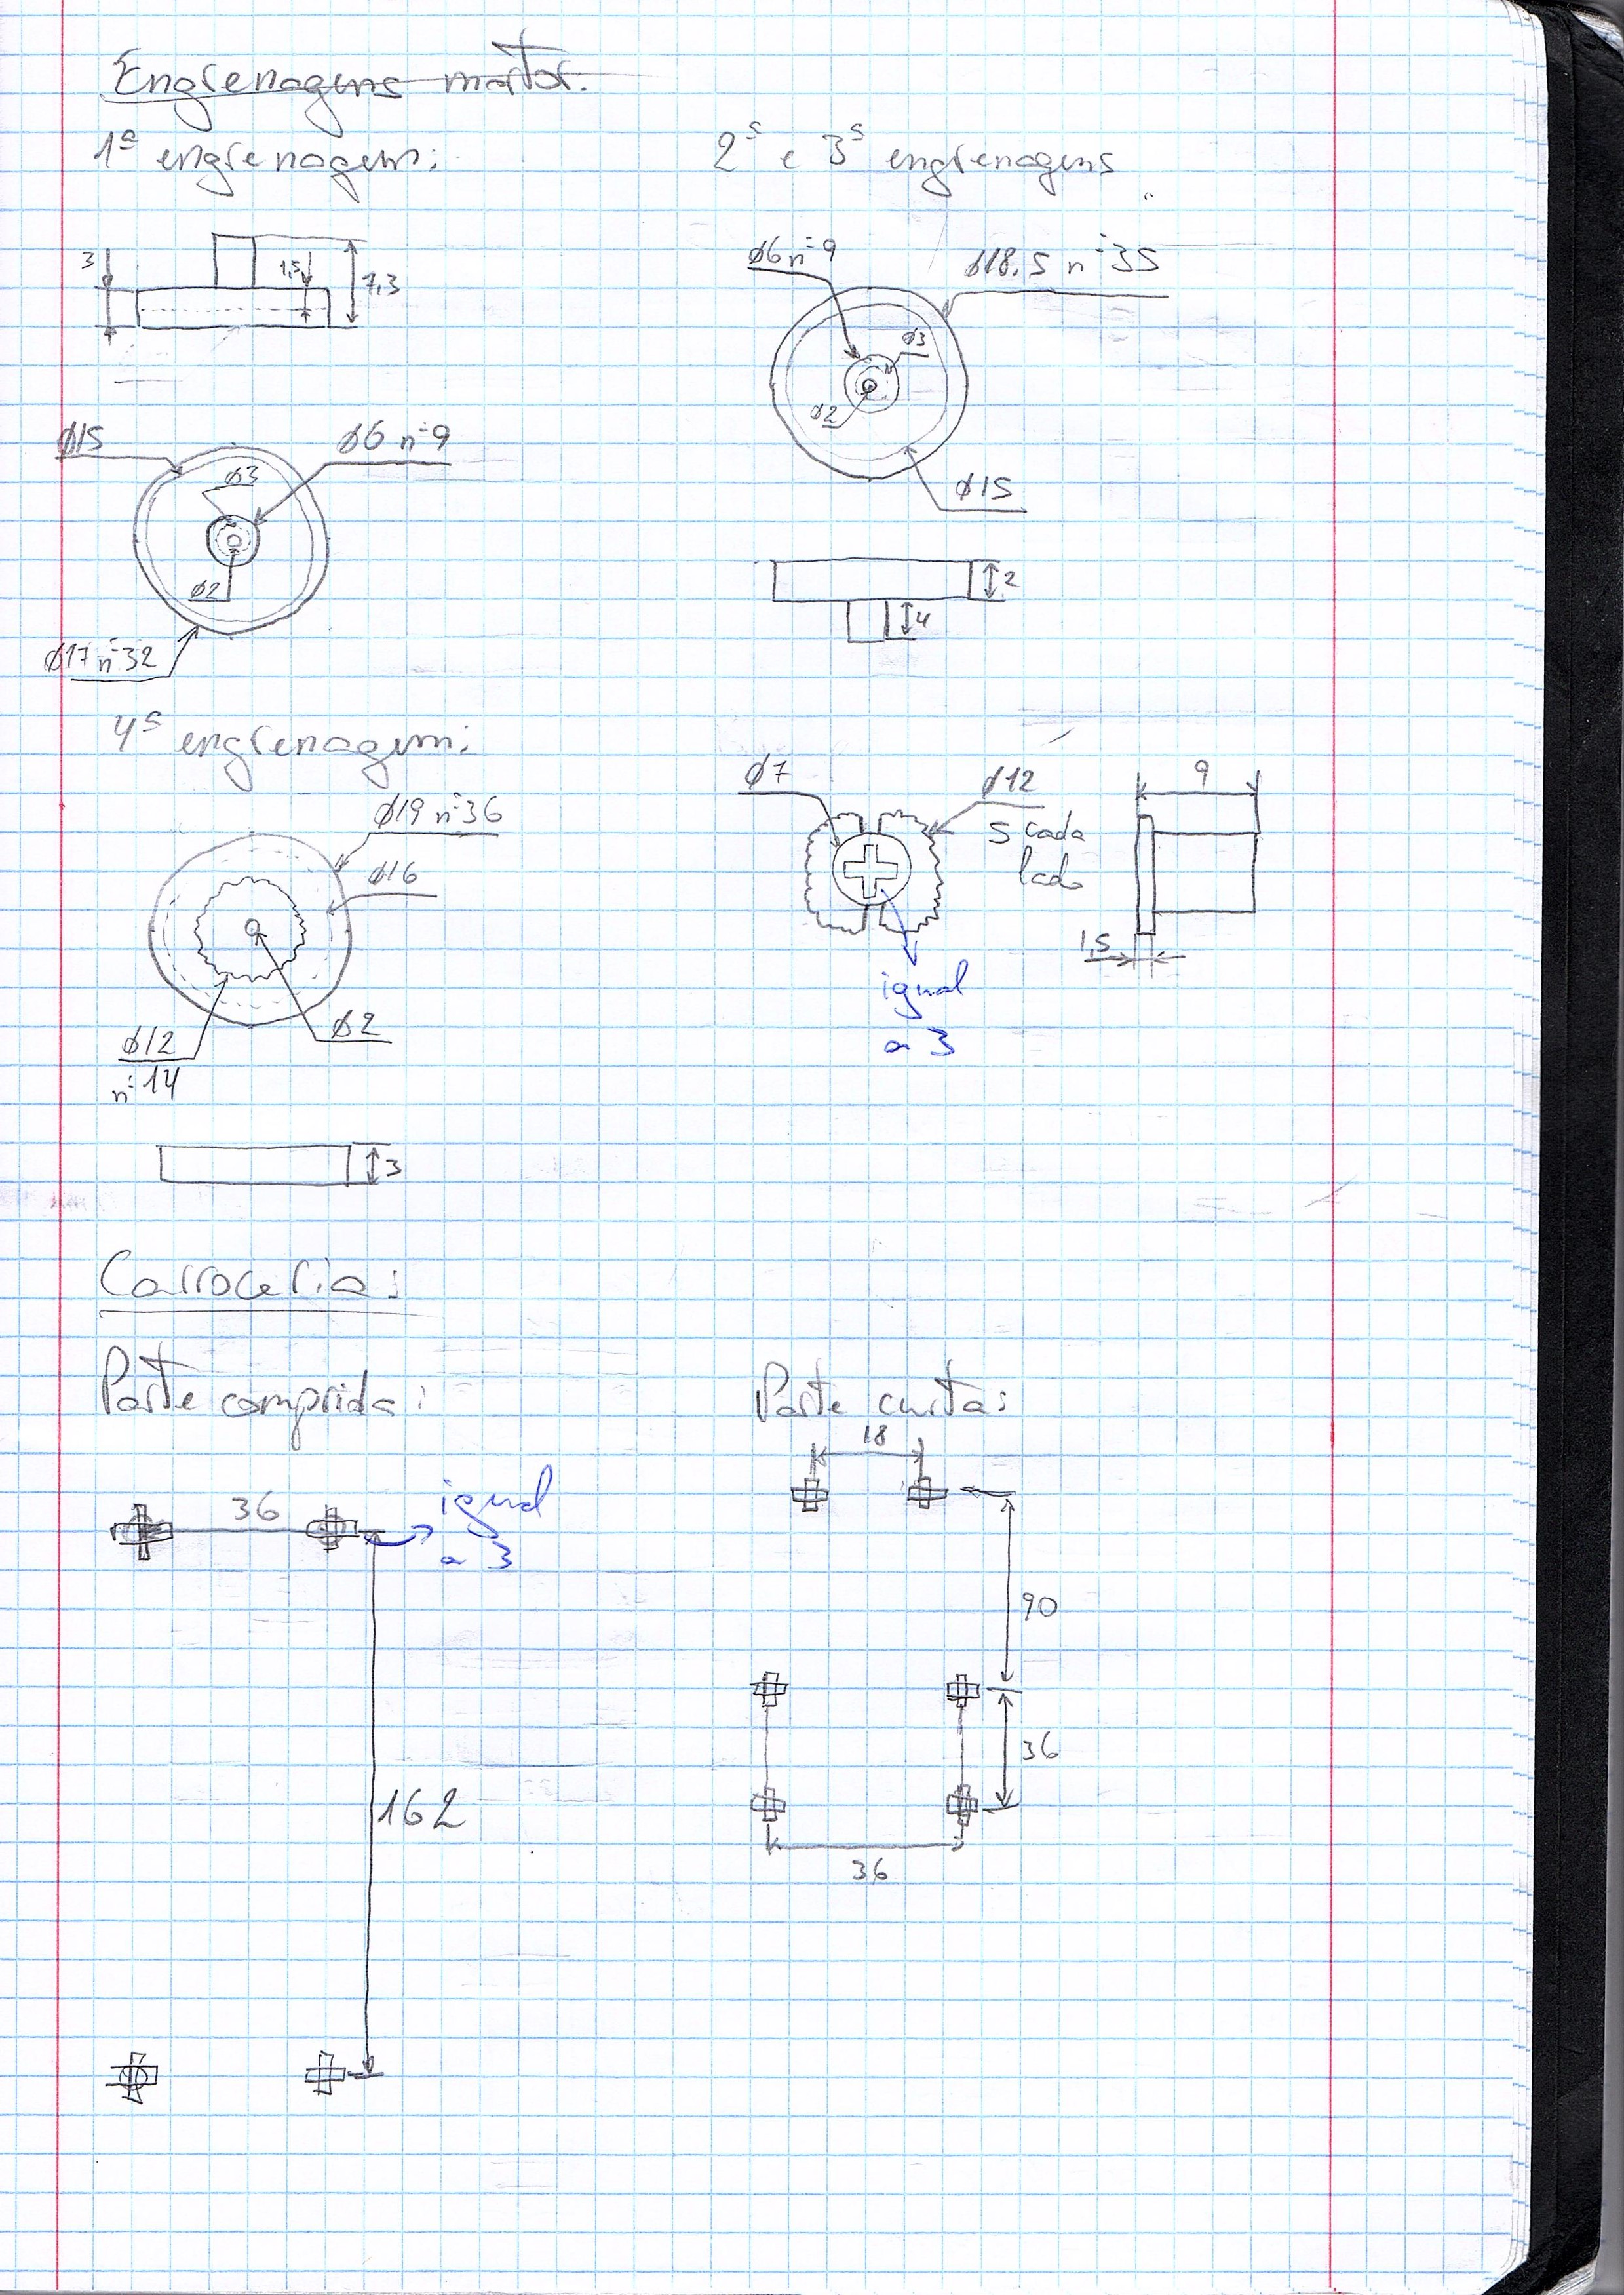 Engrenagens motor:
1ª engrenagem:
3
1,5
7,3
Ø15
Ø6 nº9
Ø3
Ø2
Ø17 nº32
2ª e 3ª engrenagens
Ø6 nº9
Ø18,5 nº35
Ø3
Ø2
Ø15
2
4
4ª engrenagem:
Ø19 nº36
Ø16
Ø2
Ø12
nº14
3
Ø7
Ø12
5 cada
lado
igual
a 3
9
1,5
Carroceria:
Parte comprida:
36
igual
a 3
162
Parte curta:
18
90
36
36